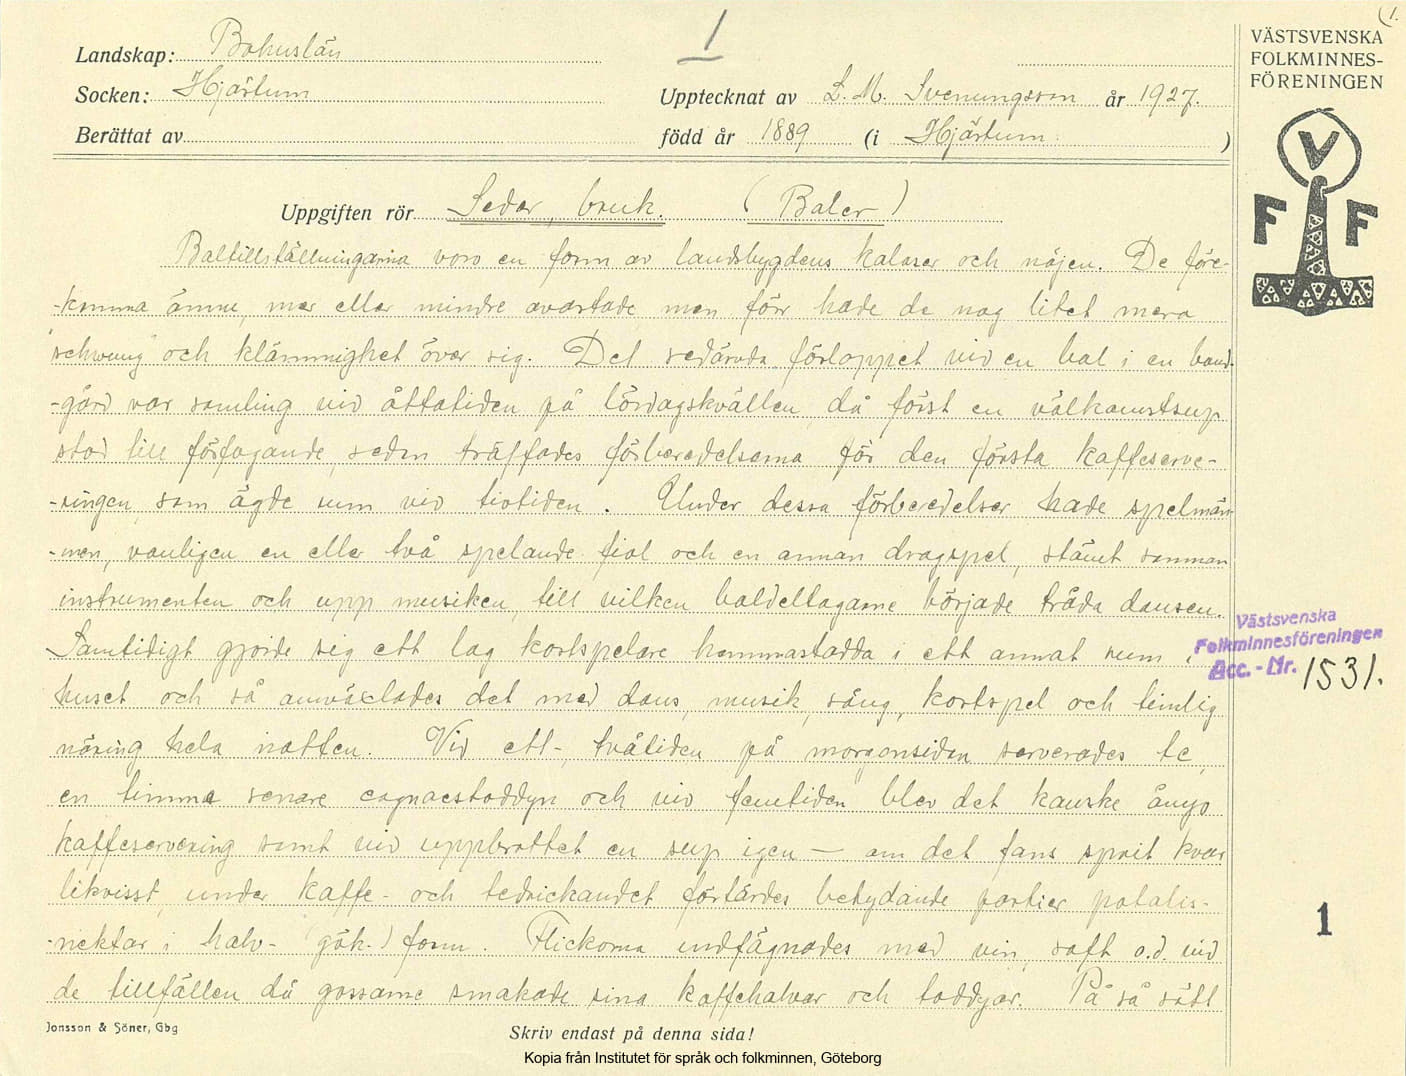 (1.
1
Landskap: Bohuslän
Socken: Hjärtum
Upptecknat av L. M. Svenungsson år 1927.
Berättat av
född år 1889 (i Hjärtum. )
VÄSTSVENSKA
FOLKMINNES-
FÖRENINGEN
V
F F
Uppgiften rör Seder, bruk. (Baler)
Baltillställningarna voro en form av landsbygdens kalaser och nöjen. De före-
-komma ännu, mer eller mindre avartade men förr hade de nog litet mera
"schwung" och klämmighet över sig. Det sedvanda förloppet vid en bal i en bond-
-gård var samling vid åttatiden på lördagskvällen, då först en välkomstsup
stod till förfogande, sedan träffades förberedelserna för den första kaffeserve-
-ringen, som ägde rum vid tiotiden. Under dessa förberedelser hade spelmän-
-nen, vanligen en eller två spelande fiol och en annan dragspel, stämt samman
instrumenten och upp musiken, till vilken baldeltagarne började tråda dansen.
Samtidigt gjorde sig ett lag kortspelare hemmastadda i ett annat rum i
huset och så omväxlades det med dans, musik, sång, kortspel och timlig
näring hela natten. Vid ett-, tvåtiden på morgonsidan serverades te,
en timma senare cognacstoddyn och vid femtiden blev det kanske ånyo
kaffeservering samt vid uppbrottet en sup igen — om det fans sprit kvar
likvisst, under kaffe- och tedrickandet förtärdes betydande partier potatis-
-nektar i halv- (gök-) form. Flickorna undfägnades med vin, saft o.d. vid
de tillfällen då gossarne smakade sina kaffehalvor och toddyar. På så sätt
Västsvenska
Folkminnesföreningen
Acc.-Nr. 1531.
1
Jonsson & Söner, Gbg
Skriv endast på denna sida!
Kopia från Institutet för språk och folkminnen, Göteborg